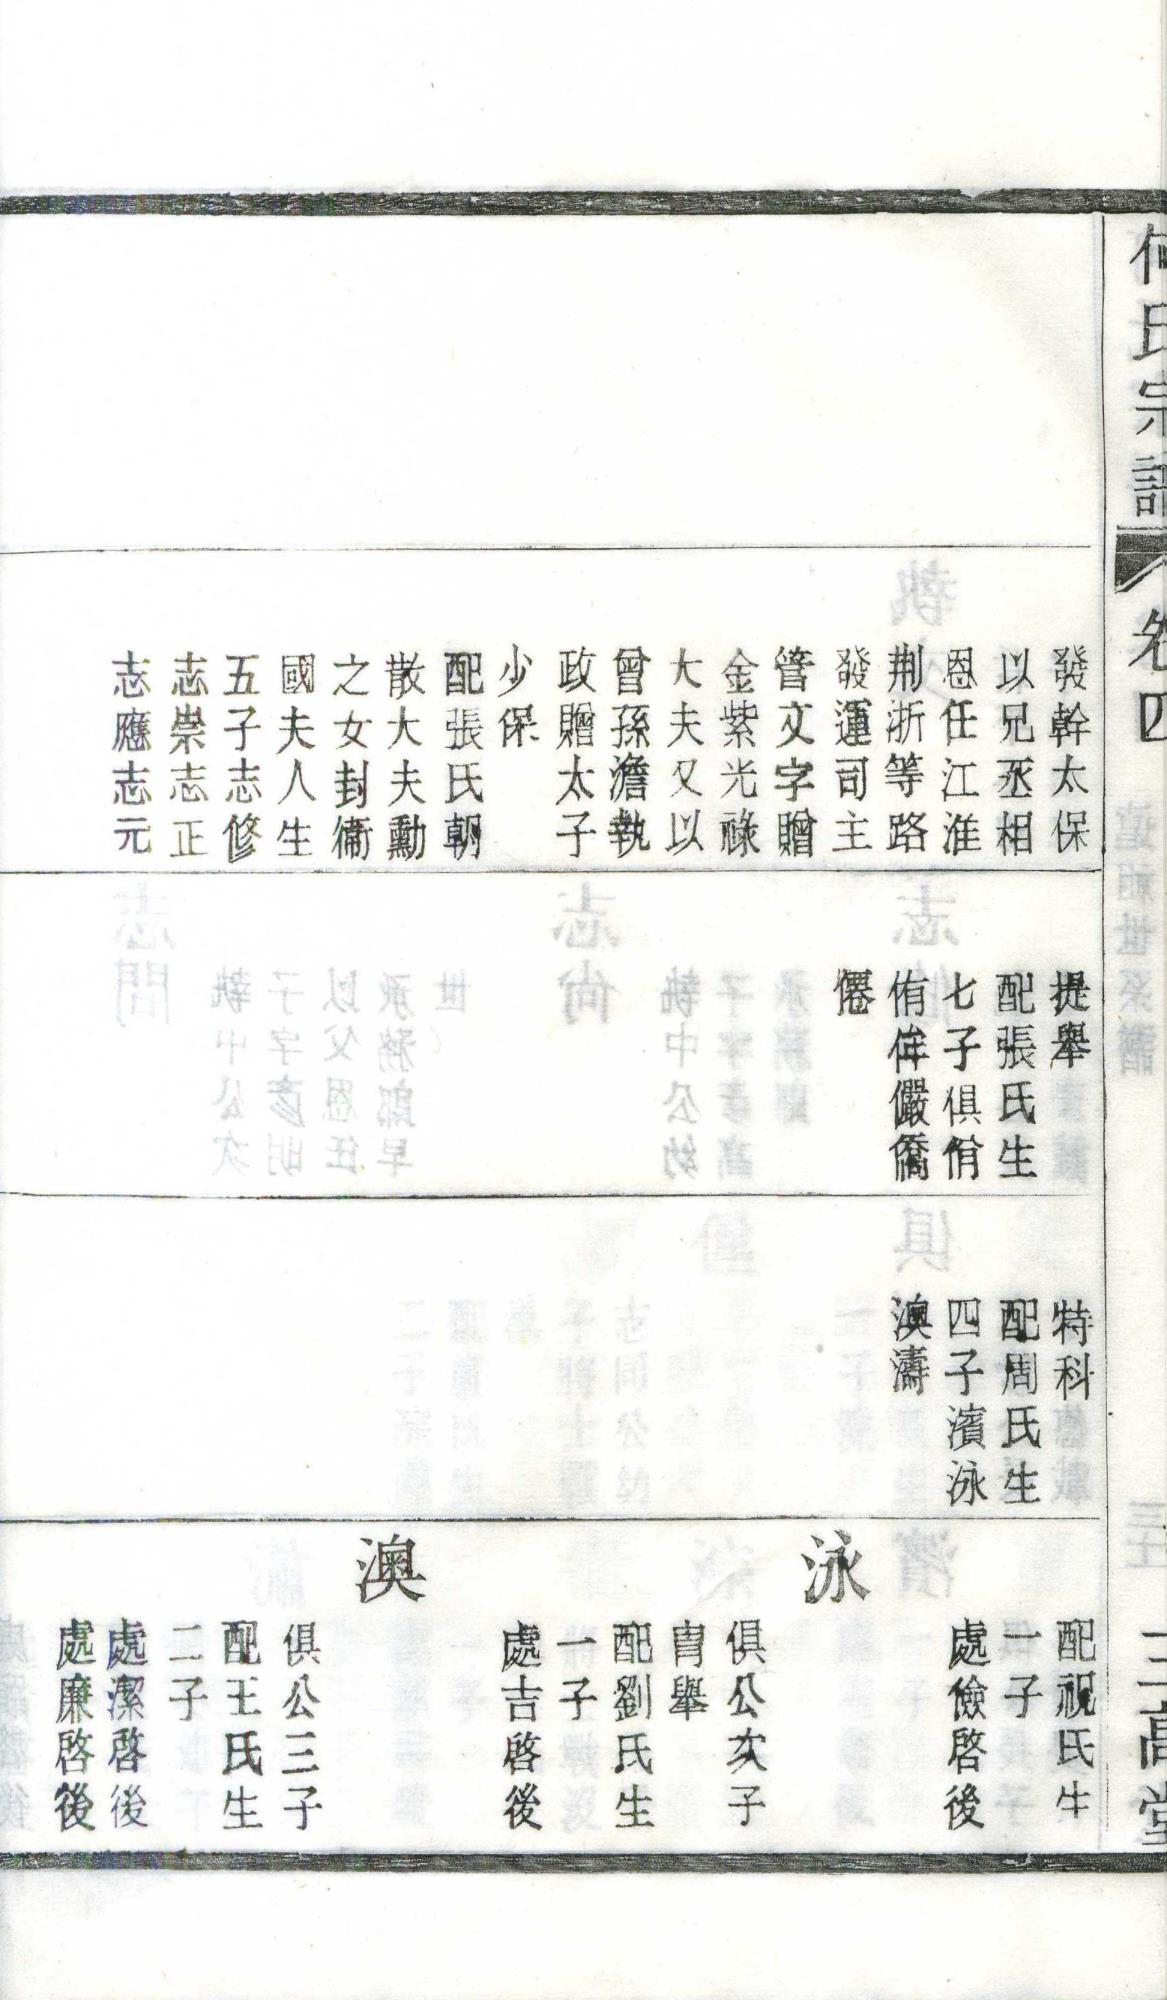 何氏宗譜
卷四
三高堂
發幹太保
以兄丞相
恩任江淮
荆浙等路
發運司主
管文字贈
金紫光祿
大夫又以
曾孫澹執
政贈太子
少保
配張氏朝
散大夫勳
之女封衞
國夫人生
五子志修
志崇志正
志應志元
提舉
配張氏生
七子俱俏
侑侔儼僑
僊
特科
配周氏生
四子濱泳
澳濤
配祝氏生
一子
處儉啓後
泳
俱公次子
胄舉
配劉氏生
一子
處吉啓後
澳
俱公三子
配王氏生
二子
處潔啓後
處廉啓後